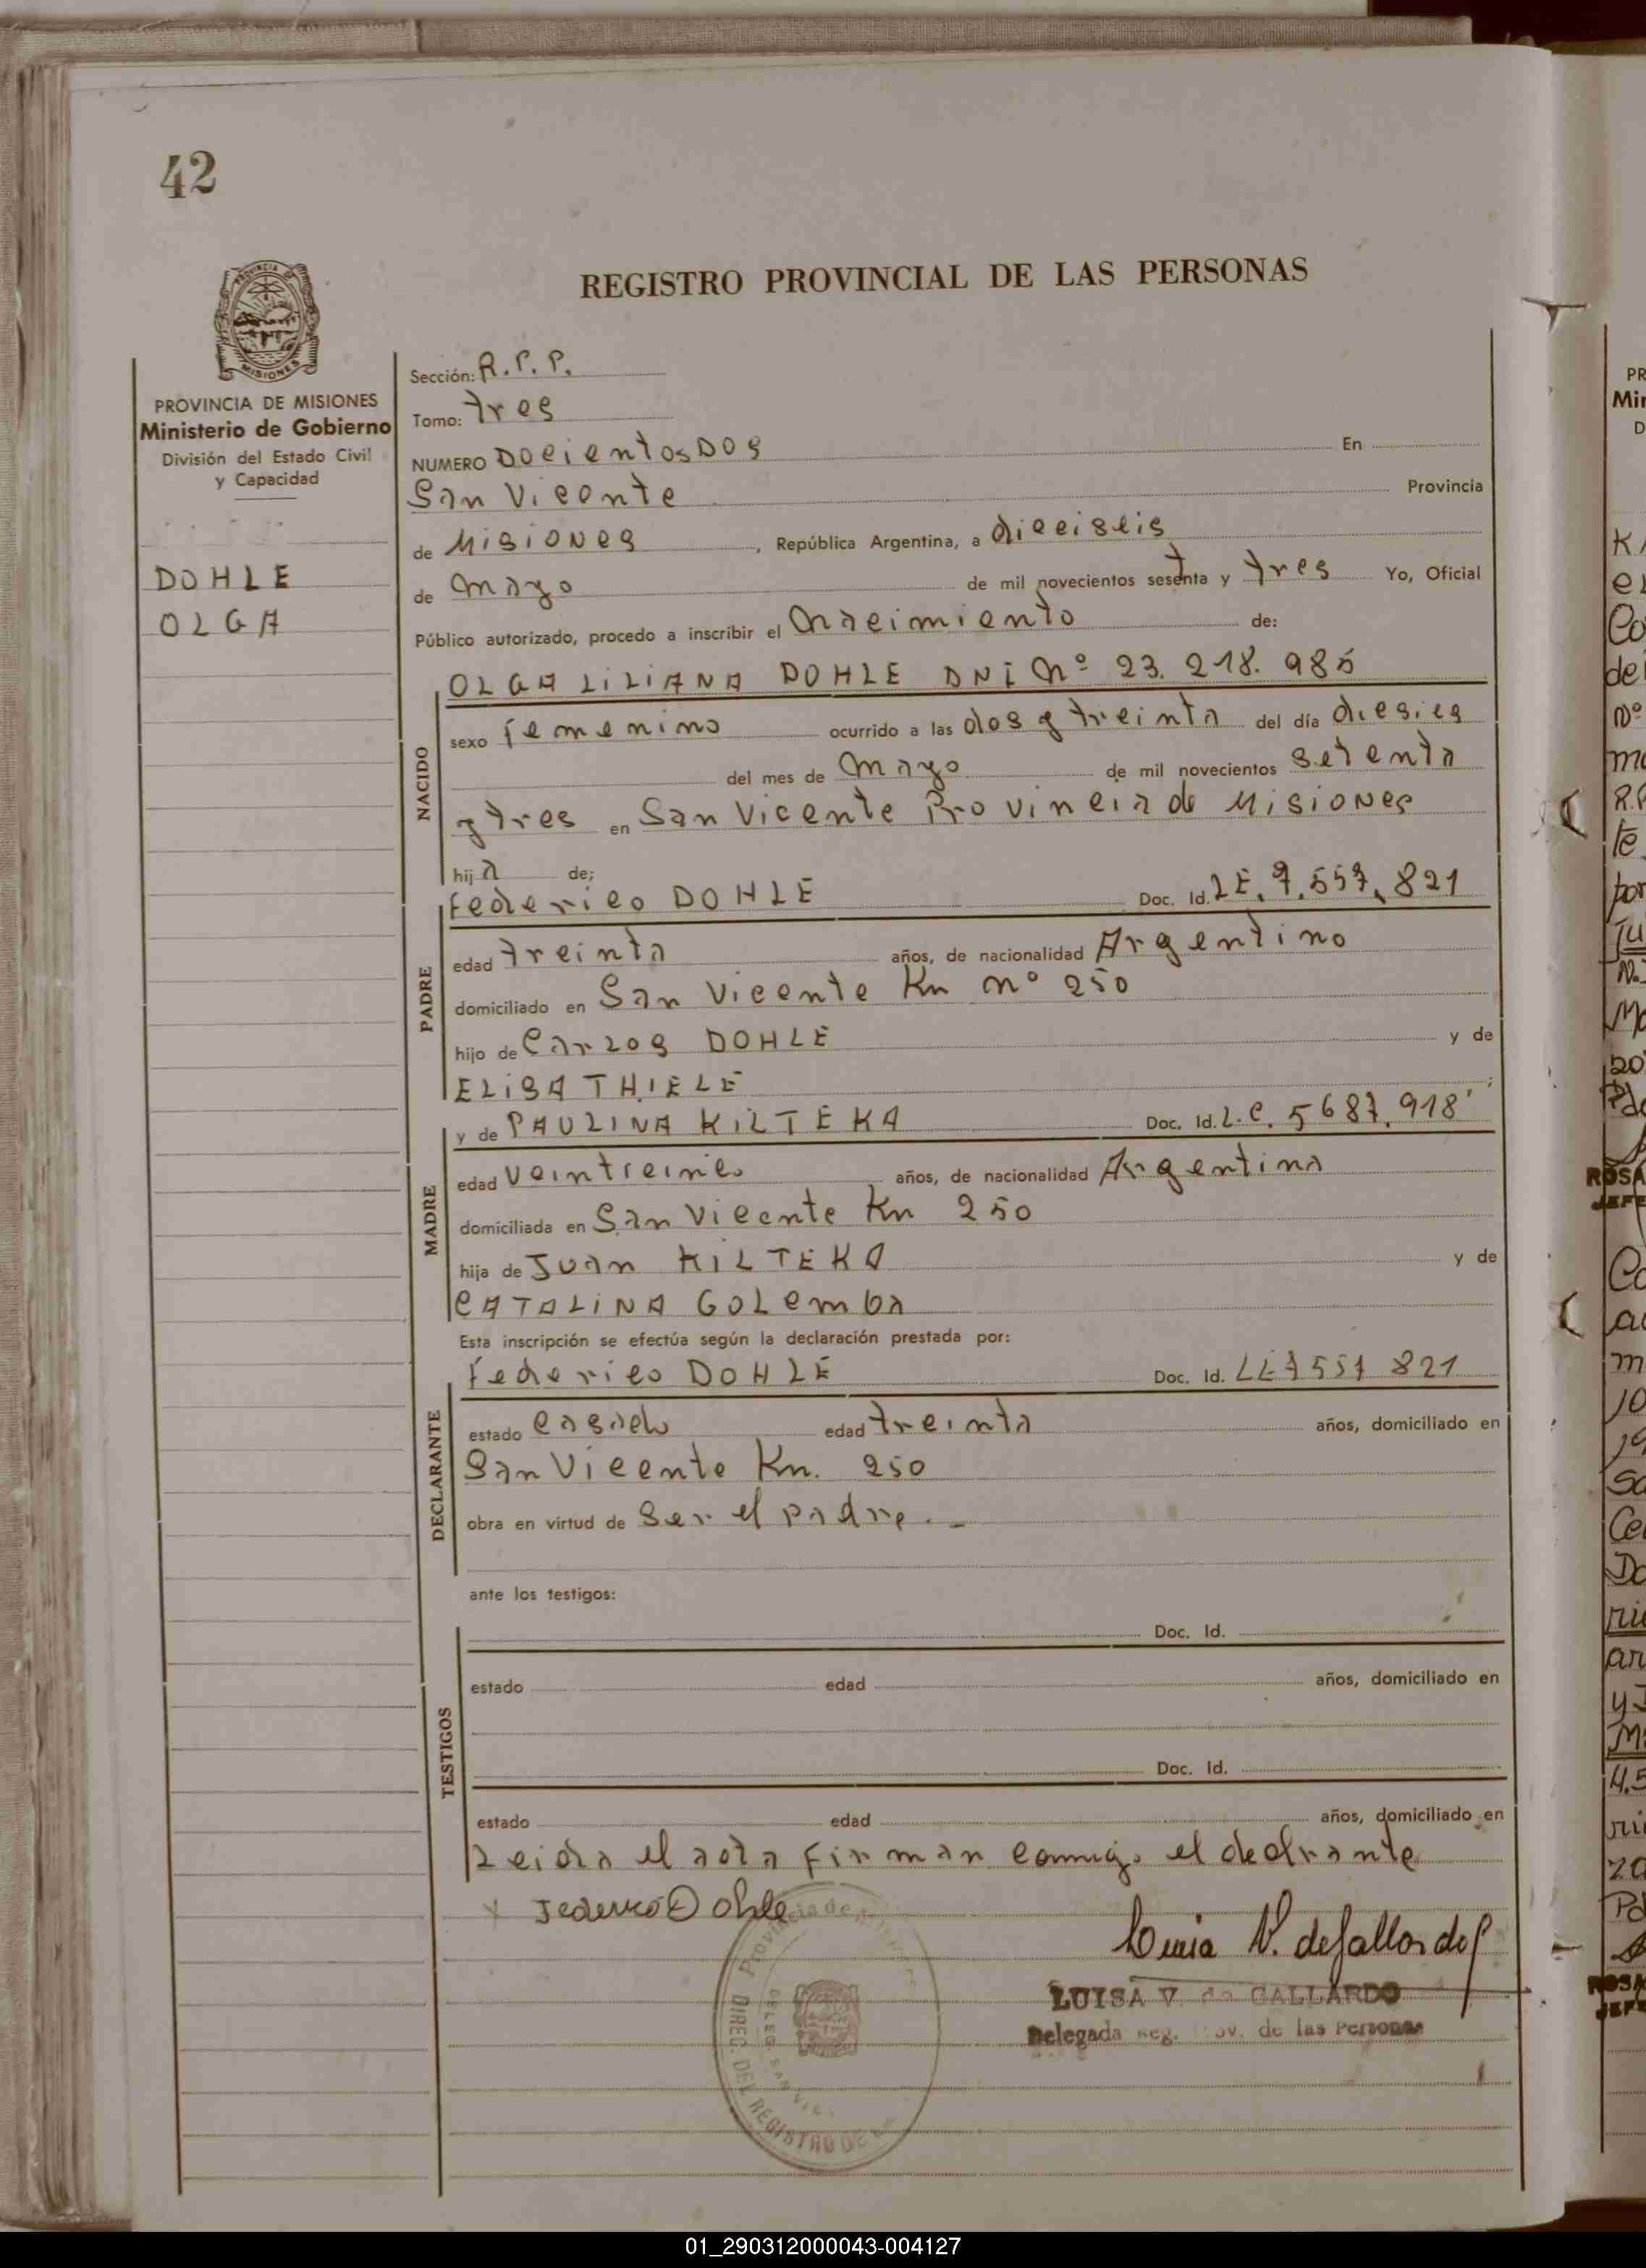 42
REGISTRO PROVINCIAL DE LAS PERSONAS
PROVINCIA DE MISIONES
Ministerio de Gobierno
División del Estado Civil
y Capacidad
DOHLE
OLGA
Sección: R.P.P.
Tomo: tres
NUMERO DOcientos DOS En
San Vicente Provincia
de Misiones, República Argentina, a dieciseis
de mayo de mil novecientos setenta y tres Yo, Oficial
Público autorizado, procedo a inscribir el nacimiento de:
OLGA LILIANA DOHLE DNI Nº 23.218.985
NACIDO
sexo femenino ocurrido a las dos y treinta del día
del mes de mayo de mil novecientos setenta
y tres en San Vicente Provincia de Misiones
hija de;
Federico DOHLE Doc. Id. LE. 7.557.821
PADRE
edad treinta años, de nacionalidad Argentino
domiciliado en San Vicente Km nº 250
hijo de Carlos DOHLE y de
ELISA THIELE ;
y de PAULINA KILTEKA Doc. Id. L.C. 5687.918
MADRE
edad años, de nacionalidad Argentina
domiciliada en San Vicente Km 250
hija de Juan KILTEKA y de
CATALINA GOLemba
Esta inscripción se efectúa según la declaración prestada por:
Federico DOHLE Doc. Id. LE 7557 821
DECLARANTE
estado casado edad treinta años, domiciliado en
San Vicente Km. 250
obra en virtud de Ser el padre.-
ante los testigos:
TESTIGOS
Doc. Id.
estado edad años, domiciliado en
Doc. Id.
estado edad años, domiciliado en
Leida el acta firman conmigo el
Federico Dohle
Luisa V. de Gallardo
LUISA V. de GALLARDO
Delegada Reg. Prov. de las Personas
01_290312000043-004127